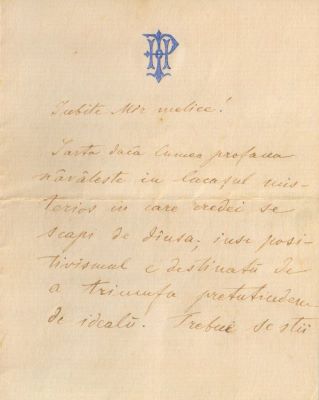 Iubite Mir melice!
Iarta dacă lumea profana
năvăleste in locașul mis-
terios in care credei se
scapi de dînsa; inse posi-
tivismul e destinatŭ de
a triumfa pretutindeni
de idealŭ. Trebue se stii